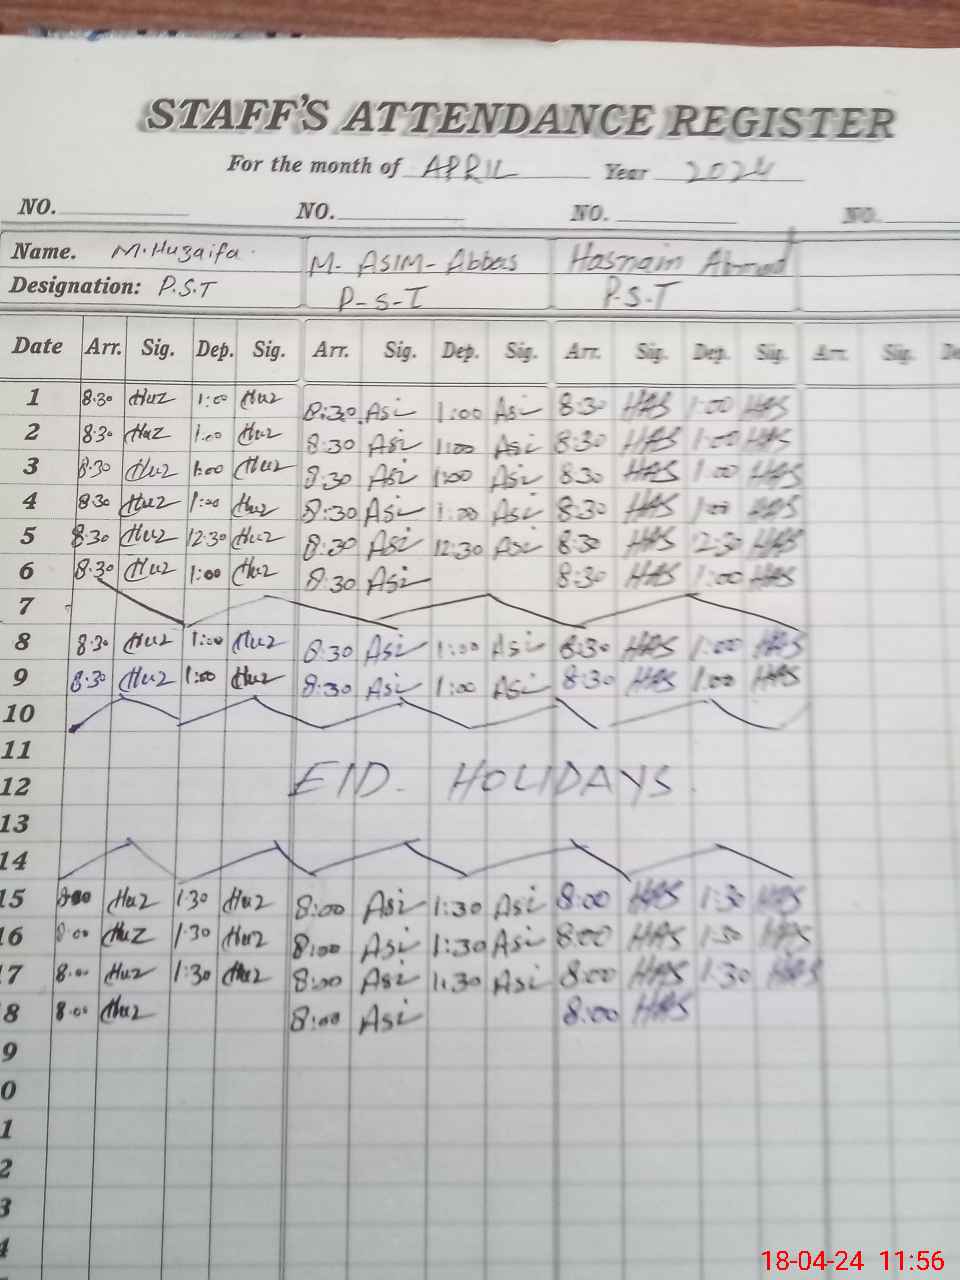 STAFF'S ATTENDANCE REGISTER
For the month of APRIL Year 2024
NO. NO. NO. NO.
Name. M. Huzaifa. M. ASIM-Abbas Hasnain Ahmad
Designation: P.S.T P-S-T P.S.T
Date Arr. Sig. Dep. Sig. Arr. Sig. Dep. Sig. Arr. Sig. Dep. Sig. Arr. Sig. De
1 8:30 Huz 1:00 Huz 8:30 Asi 1:00 Asi 8:30 HAS 1:00 HAS
2 8:30 Huz 1:00 Huz 8:30 Asi 1:00 Asi 8:30 HAS 1:00 HAS
3 8:30 Huz 1:00 Huz 8:30 Asi 1:00 Asi 8:30 HAS 1:00 HAS
4 8:30 Huz 1:00 Huz 8:30 Asi 1:00 Asi 8:30 HAS 1:00 HAS
5 8:30 Huz 12:30 Huz 8:30 Asi 12:30 Asi 8:30 HAS 12:30 HAS
6 8:30 Huz 1:00 Huz 8:30 Asi 8:30 HAS 1:00 HAS
7
8 8:30 Huz 1:00 Huz 8:30 Asi 1:00 Asi 8:30 HAS 1:00 HAS
9 8:30 Huz 1:00 Huz 8:30 Asi 1:00 Asi 8:30 HAS 1:00 HAS
10
11
12 EID. HOLIDAYS.
13
14
15 8:00 Huz 1:30 Huz 8:00 Asi 1:30 Asi 8:00 HAS 1:30 HAS
16 8:00 Huz 1:30 Huz 8:00 Asi 1:30 Asi 8:00 HAS 1:30 HAS
17 8:00 Huz 1:30 Huz 8:00 Asi 1:30 Asi 8:00 HAS 1:30 HAS
8 8:00 Huz 8:00 Asi 8:00 HAS
9
0
1
2
3
4
18-04-24 11:56